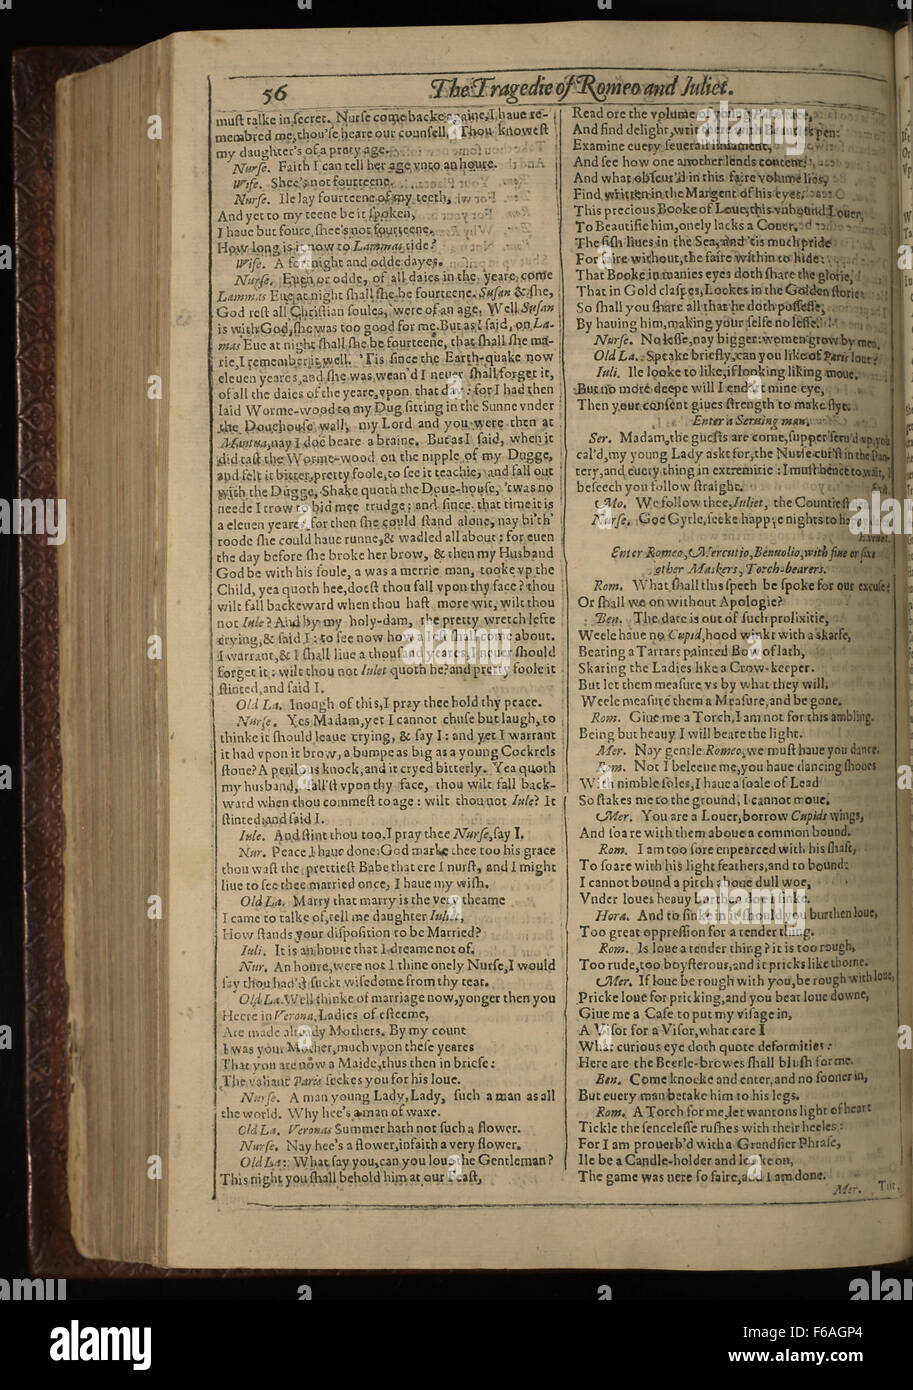 56
The Tragedie of Romeo and Juliet.
muſt talke in ſecret. Nurſe come backe againe, I haue re-
membred me, thou'ſe heare our counſell, Thou knoweſt
my daughter's of a prety age.
Nurſe. Faith I can tell her age vnto an houre.
Wife. Shee's not fourteene.
Nurſe. Ile lay fourteene of my teeth,
And yet to my teene be it ſpoken,
I haue but foure, ſhee's not fourteene.
How long is it now to Lammas tide?
Wife. A fortnight and odde dayes.
Nurſe. Euen or odde, of all daies in the yeare come
Lammas Eue at night ſhall ſhe be fourteene. Suſan & ſhe,
God reſt all Chriſtian ſoules, were of an age. Well Suſan
is with God, ſhe was too good for me. But as I ſaid, on La-
mas Eue at night ſhall ſhe be fourteene, that ſhall ſhe ma-
rie, I remember it well. 'Tis ſince the Earth-quake now
eleuen yeares, and ſhe was wean'd I neuer ſhall forget it,
of all the daies of the yeare, vpon that day: for I had then
laid Worme-wood to my Dug ſitting in the Sunne vnder
the Douehouſe wall, my Lord and you were then at
Mantua, nay I doe beare a braine. But as I ſaid, when it
did taſt the Worme-wood on the nipple of my Dugge,
and felt it bitter, pretty foole, to ſee it teachie, and fall out
with the Dugge, Shake quoth the Doue-houſe, 'twas no
neede I trow to bid mee trudge; and ſince that time it is
a eleuen yeares, for then ſhe could ſtand alone, nay bi'th'
roode ſhe could haue runne, & wadled all about: for euen
the day before ſhe broke her brow, & then my Husband
God be with his ſoule, a was a merrie man, tooke vp the
Child, yea quoth hee, doeſt thou fall vpon thy face? thou
wilt fall backeward when thou haſt more wit, wilt thou
not Iule? And by my holy-dam, the pretty wretch lefte
crying, & ſaid I: to ſee now how a Ieſt ſhall come about.
I warrant, & I ſhall liue a thouſand yeares, I neuer ſhould
forget it: wilt thou not Iulet quoth he? and pretty foole it
ſtinted, and ſaid I.
Old La. Inough of this, I pray thee hold thy peace.
Nurſe. Yes Madam, yet I cannot chuſe but laugh, to
thinke it ſhould leaue crying, & ſay I: and yet I warrant
it had vpon it brow, a bumpe as big as a young Cockrels
ſtone? A perilous knock, and it cryed bitterly. Yea quoth
my husband, fall'ſt vpon thy face, thou wilt fall back-
ward when thou commeſt to age: wilt thou not Iule? It
ſtinted: and ſaid I.
Iule. And ſtint thou too, I pray thee Nurſe, ſay I.
Nur. Peace I haue done: God marke thee too his grace
thou waſt the prettieſt Babe that ere I nurſt, and I might
liue to ſee thee married once, I haue my wiſh.
Old La. Marry that marry is the very theame
I came to talke of, tell me daughter Iuliet,
How ſtands your diſpoſition to be Married?
Iuli. It is an houre that I dreame not of.
Nur. An houre, were not I thine onely Nurſe, I would
ſay thou had'ſt ſuckt wiſedome from thy teat.
Old La. Well thinke of marriage now, yonger then you
Heere in Verona, Ladies of eſteeme,
Are made already Mothers. By my count
I was your Mother, much vpon theſe yeares
That you are now a Maide, thus then in briefe:
The valiant Paris ſeekes you for his loue.
Nurſe. A man young Lady, Lady, ſuch a man as all
the world. Why hee's a man of waxe.
Old La. Veronas Summer hath not ſuch a flower.
Nurſe. Nay hee's a flower, infaith a very flower.
Old La: What ſay you, can you loue the Gentleman?
This night you ſhall behold him at our Feaſt,
Read ore the volume of young Paris face,
And find delight, writ there with Beauties pen:
Examine euery ſeuerall liniament,
And ſee how one another lends content:
And what obſcur'd in this faire volume lies,
Find written in the Margent of his eyes.
This precious Booke of Loue, this vnbound Louer,
To Beautifie him, onely lacks a Couer.
The fiſh liues in the Sea, and 'tis much pride
For faire without, the faire within to hide:
That Booke in manies eyes doth ſhare the glorie,
That in Gold claſpes, Lockes in the Golden ſtorie:
So ſhall you ſhare all that he doth poſſeſſe,
By hauing him, making your ſelfe no leſſe.
Nurſe. No leſſe, nay bigger: women grow by men.
Old La. Speake briefly, can you like of Paris loue?
Iuli. Ile looke to like, if looking liking moue.
But no more deepe will I endart mine eye,
Then your conſent giues ſtrength to make flye.
Enter a Seruing man.
Ser. Madam, the gueſts are come, ſupper ſeru'd vp, you
cal'd, my young Lady askt for, the Nurſe cur'ſt in the Pan-
tery, and euery thing in extremitie: I muſt hence to wait, I
beſeech you follow ſtraight.
Exit
Mo. We follow thee, Iuliet, the Countie ſt
Nurſe. Goe Gyrle, ſeeke happie nights to
Exeunt.
Enter Romeo, Mercutio, Benuolio, with fiue or ſixe
other Maskers, Torch-bearers.
Rom. What ſhall this ſpeeh be ſpoke for our excuſe?
Or ſhall we on without Apologie?
Ben. The date is out of ſuch prolixitie,
Weele haue no Cupid, hood winkt with a skarfe,
Bearing a Tartars painted Bow of lath,
Skaring the Ladies like a Crow-keeper.
But let them meaſure vs by what they will,
Weele meaſure them a Meaſure, and be gone.
Rom. Giue me a Torch, I am not for this ambling.
Being but heauy I will beare the light.
Mer. Nay gentle Romeo, we muſt haue you dance.
Rom. Not I beleeue me, you haue dancing ſhooes
With nimble ſoles, I haue a ſoale of Lead
So ſtakes me to the ground, I cannot moue.
Mer. You are a Louer, borrow Cupids wings,
And ſoare with them aboue a common bound.
Rom. I am too ſore enpearced with his ſhaft,
To ſoare with his light feathers, and to bound:
I cannot bound a pitch aboue dull woe,
Vnder loues heauy burthen doe I ſinke.
Hora. And to ſinke in it ſhould you burthen loue,
Too great oppreſſion for a tender thing.
Rom. Is loue a tender thing? it is too rough,
Too rude, too boyſterous, and it pricks like thorne.
Mer. If loue be rough with you, be rough with loue,
Pricke loue for pricking, and you beat loue downe,
Giue me a Caſe to put my viſage in,
A Viſor for a Viſor, what care I
What curious eye doth quote deformities:
Here are the Beetle-browes ſhall bluſh for me.
Ben. Come knocke and enter, and no ſooner in,
But euery man betake him to his legs.
Rom. A Torch for me, let wantons light of heart
Tickle the ſenceleſſe ruſhes with their heeles:
For I am prouerb'd with a Grandſier Phraſe,
Ile be a Candle-holder and looke on,
The game was nere ſo faire, and I am done.
Mer. Tut,
alamy
Image ID: F6AGP4
www.alamy.com